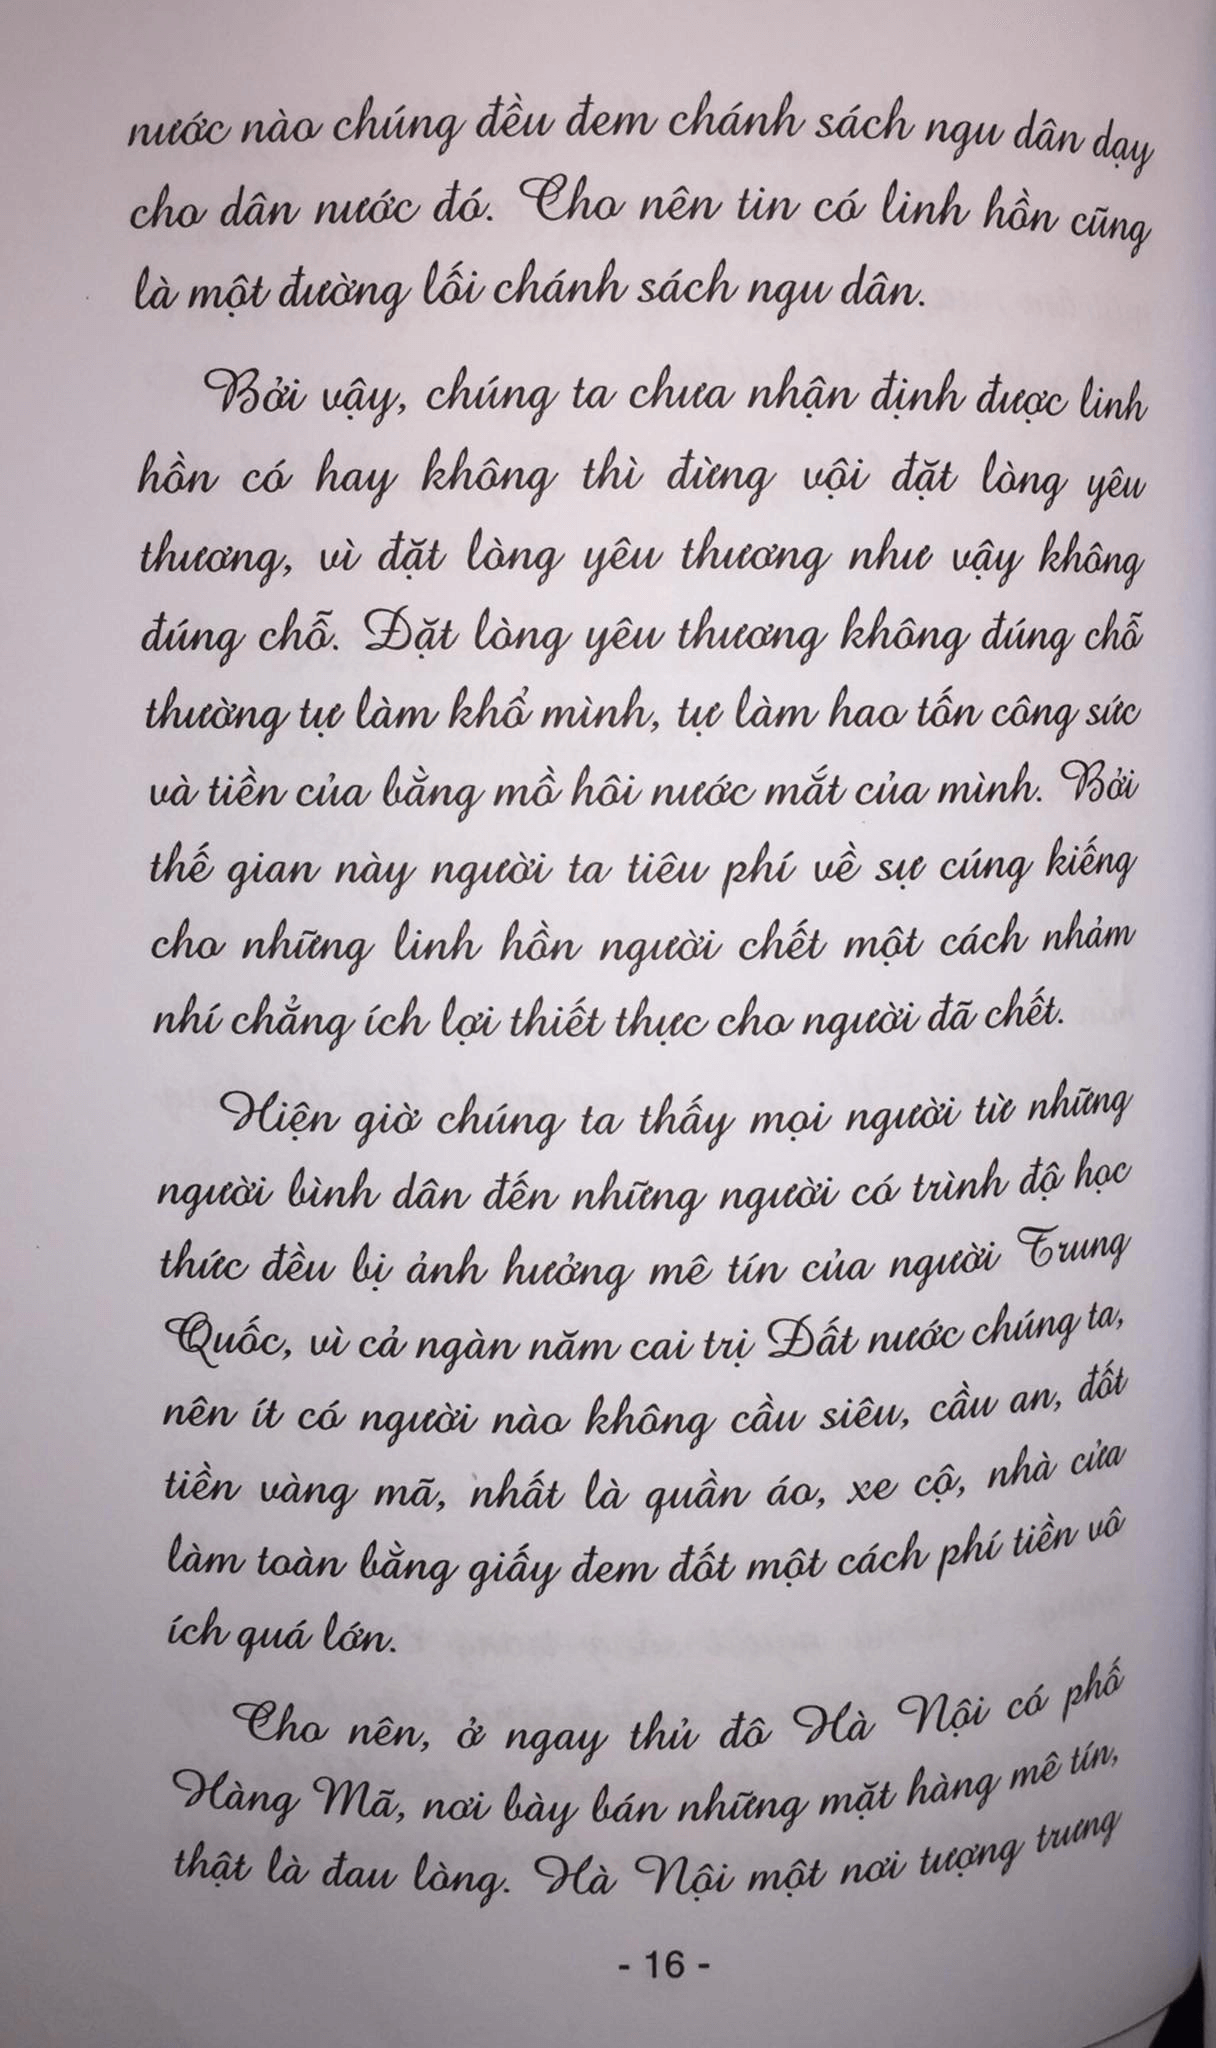 nước nào chúng đều đem chánh sách ngu dân dạy
cho dân nước đó. Cho nên tin có linh hồn cũng
là một đường lối chánh sách ngu dân.
Bởi vậy, chúng ta chưa nhận định được linh
hồn có hay không thì đừng vội đặt lòng yêu
thương, vì đặt lòng yêu thương như vậy không
đúng chỗ. Đặt lòng yêu thương không đúng chỗ
thường tự làm khổ mình, tự làm hao tốn công sức
và tiền của bằng mồ hôi nước mắt của mình. Bởi
thế gian này người ta tiêu phí về sự cúng kiếng
cho những linh hồn người chết một cách nhảm
nhí chẳng ích lợi thiết thực cho người đã chết.
Hiện giờ chúng ta thấy mọi người từ những
người bình dân đến những người có trình độ học
thức đều bị ảnh hưởng mê tín của người Trung
Quốc, vì cả ngàn năm cai trị Đất nước chúng ta,
nên ít có người nào không cầu siêu, cầu an, đốt
tiền vàng mã, nhất là quần áo, xe cộ, nhà cửa
làm toàn bằng giấy đem đốt một cách phí tiền vô
ích quá lớn.
Cho nên, ở ngay thủ đô Hà Nội có phố
Hàng Mã, nơi bày bán những mặt hàng mê tín,
thật là đau lòng. Hà Nội một nơi tượng trưng
- 16 -